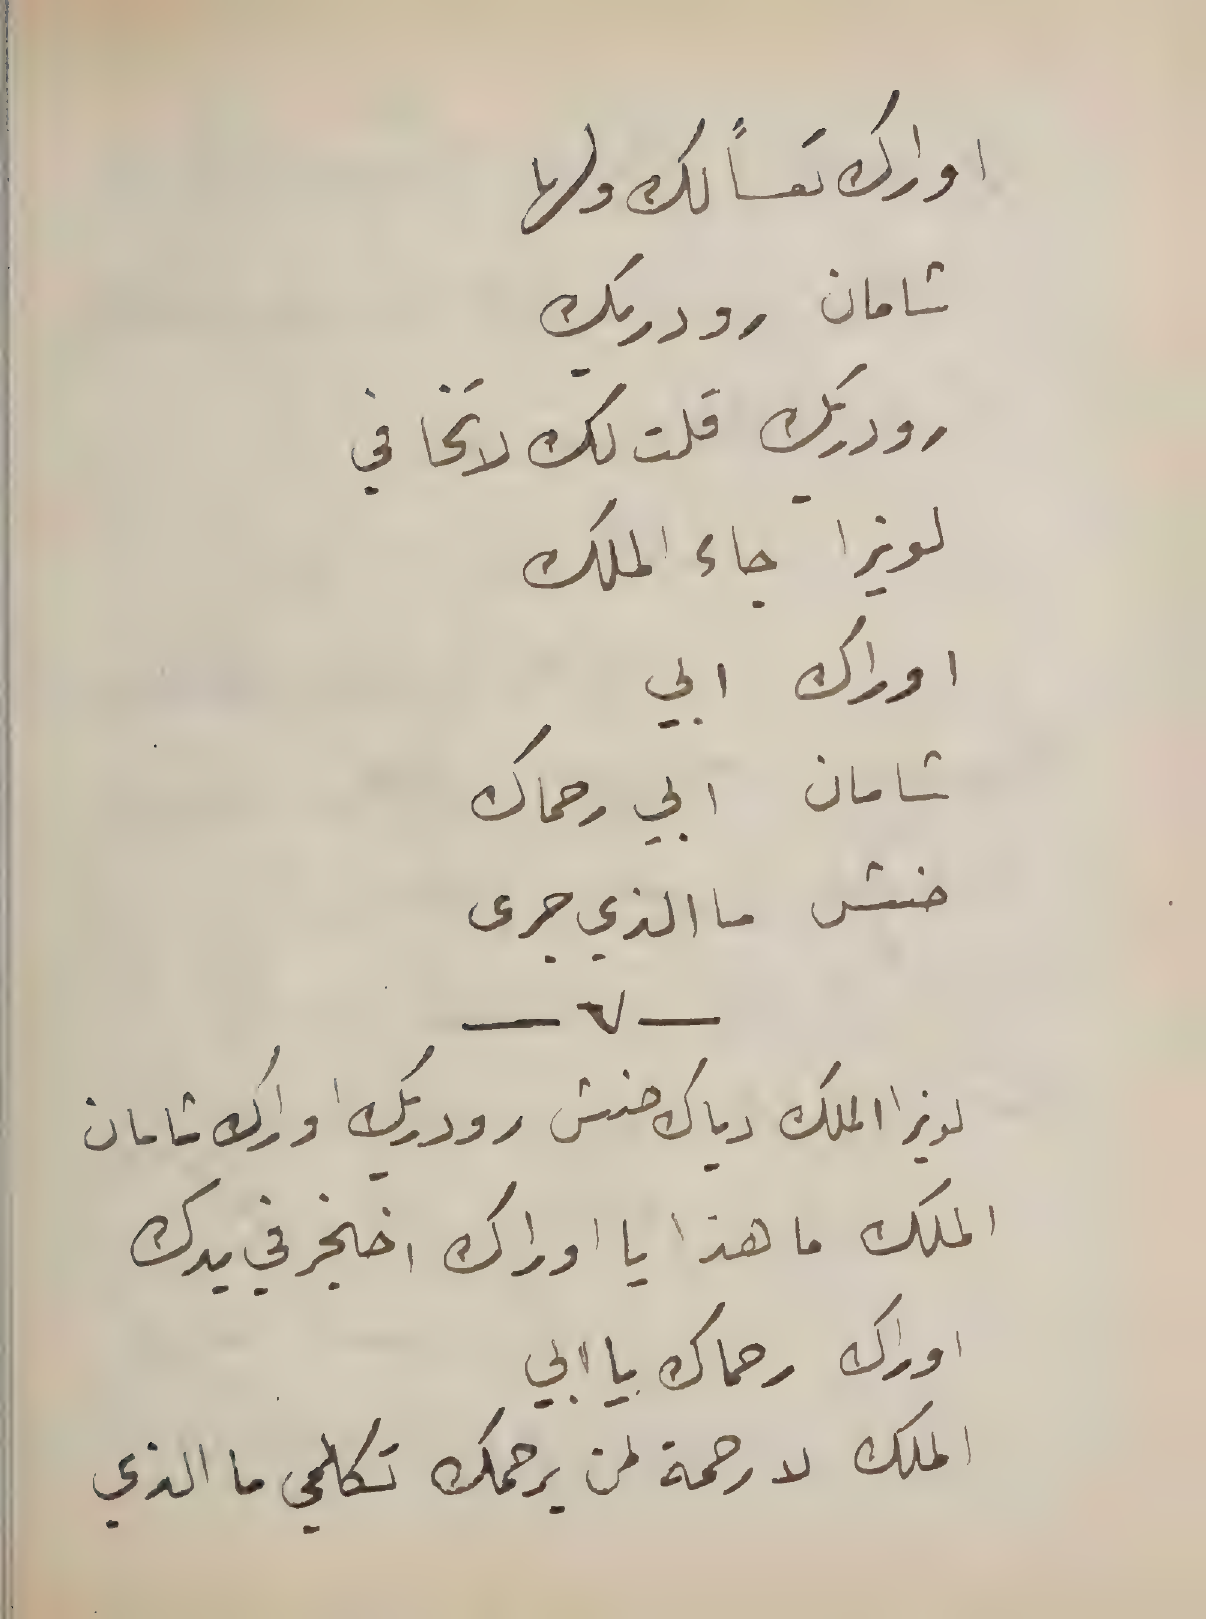 اوراك تعساً لك ولها
شامان رودريك
رودريك قلت لك لا تخافي
لويزا جاء الملك
اوراك ابي
شامان ابي رحماك
حنش ما الذي جرى
— ٦ —
لويزا الملك دياك حنش رودريك اوراك شامان
الملك ما هذا يا اوراك اخنجر في يدك
اوراك رحماك يا ابي
الملك لا رحمة لمن يرحمك تكلمي ما الذي